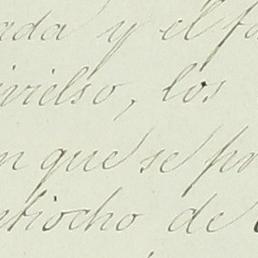 ada y el fa
ivielso, los
n que se pr
etiocho de